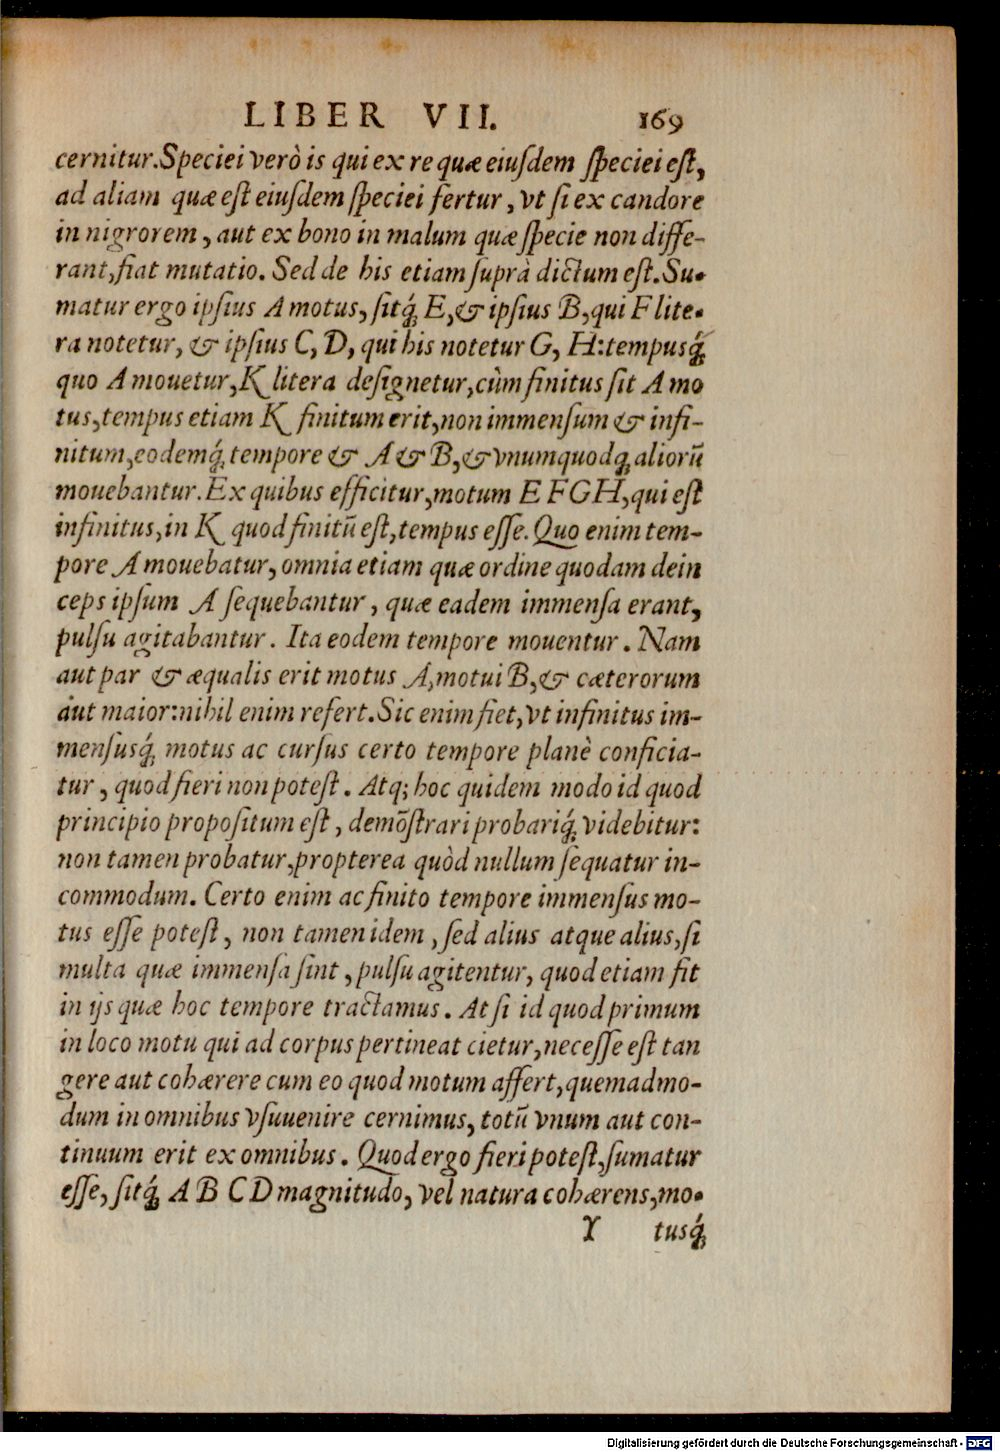 LIBER VII. 169
cernitur. Speciei verò is qui ex re quæ eiuſdem ſpeciei eſt,
ad aliam quæ eſt eiuſdem ſpeciei fertur, vt ſi ex candore
in nigrorem, aut ex bono in malum quæ ſpecie non diffe-
rant, fiat mutatio. Sed de his etiam ſuprà dictum eſt. Su-
matur ergo ipſius A motus, ſitq́; E, & ipſius B, qui F lite-
ra notetur, & ipſius C, D, qui his notetur G, H: tempusq́;
quo A mouetur, K litera deſignetur, cùm finitus ſit A mo
tus, tempus etiam K finitum erit, non immenſum & infi-
nitum, eodemq́; tempore & A & B, & vnumquodq; aliorū
mouebantur. Ex quibus efficitur, motum E F G H, qui eſt
infinitus, in K quod finitū eſt, tempus eſſe. Quo enim tem-
pore A mouebatur, omnia etiam quæ ordine quodam dein
ceps ipſum A ſequebantur, quæ eadem immenſa erant,
pulſu agitabantur. Ita eodem tempore mouentur. Nam
aut par & æqualis erit motus A, motui B, & cæterorum
aut maior: nihil enim refert. Sic enim fiet, vt infinitus im-
menſusq́; motus ac curſus certo tempore planè conficia-
tur, quod fieri non poteſt. Atq; hoc quidem modo id quod
principio propoſitum eſt, demōſtrari probariq́; videbitur:
non tamen probatur, propterea quòd nullum ſequatur in-
commodum. Certo enim ac finito tempore immenſus mo-
tus eſſe poteſt, non tamen idem, ſed alius atque alius, ſi
multa quæ immenſa ſint, pulſu agitentur, quod etiam fit
in ijs quæ hoc tempore tractamus. At ſi id quod primum
in loco motu qui ad corpus pertineat cietur, neceſſe eſt tan
gere aut cohærere cum eo quod motum affert, quemadmo-
dum in omnibus vſuuenire cernimus, totū vnum aut con-
tinuum erit ex omnibus. Quod ergo fieri poteſt, ſumatur
eſſe, ſitq́; A B C D magnitudo, vel natura cohærens, mo-
Y tusq́;
Digitalisierung gefördert durch die Deutsche Forschungsgemeinschaft - DFG